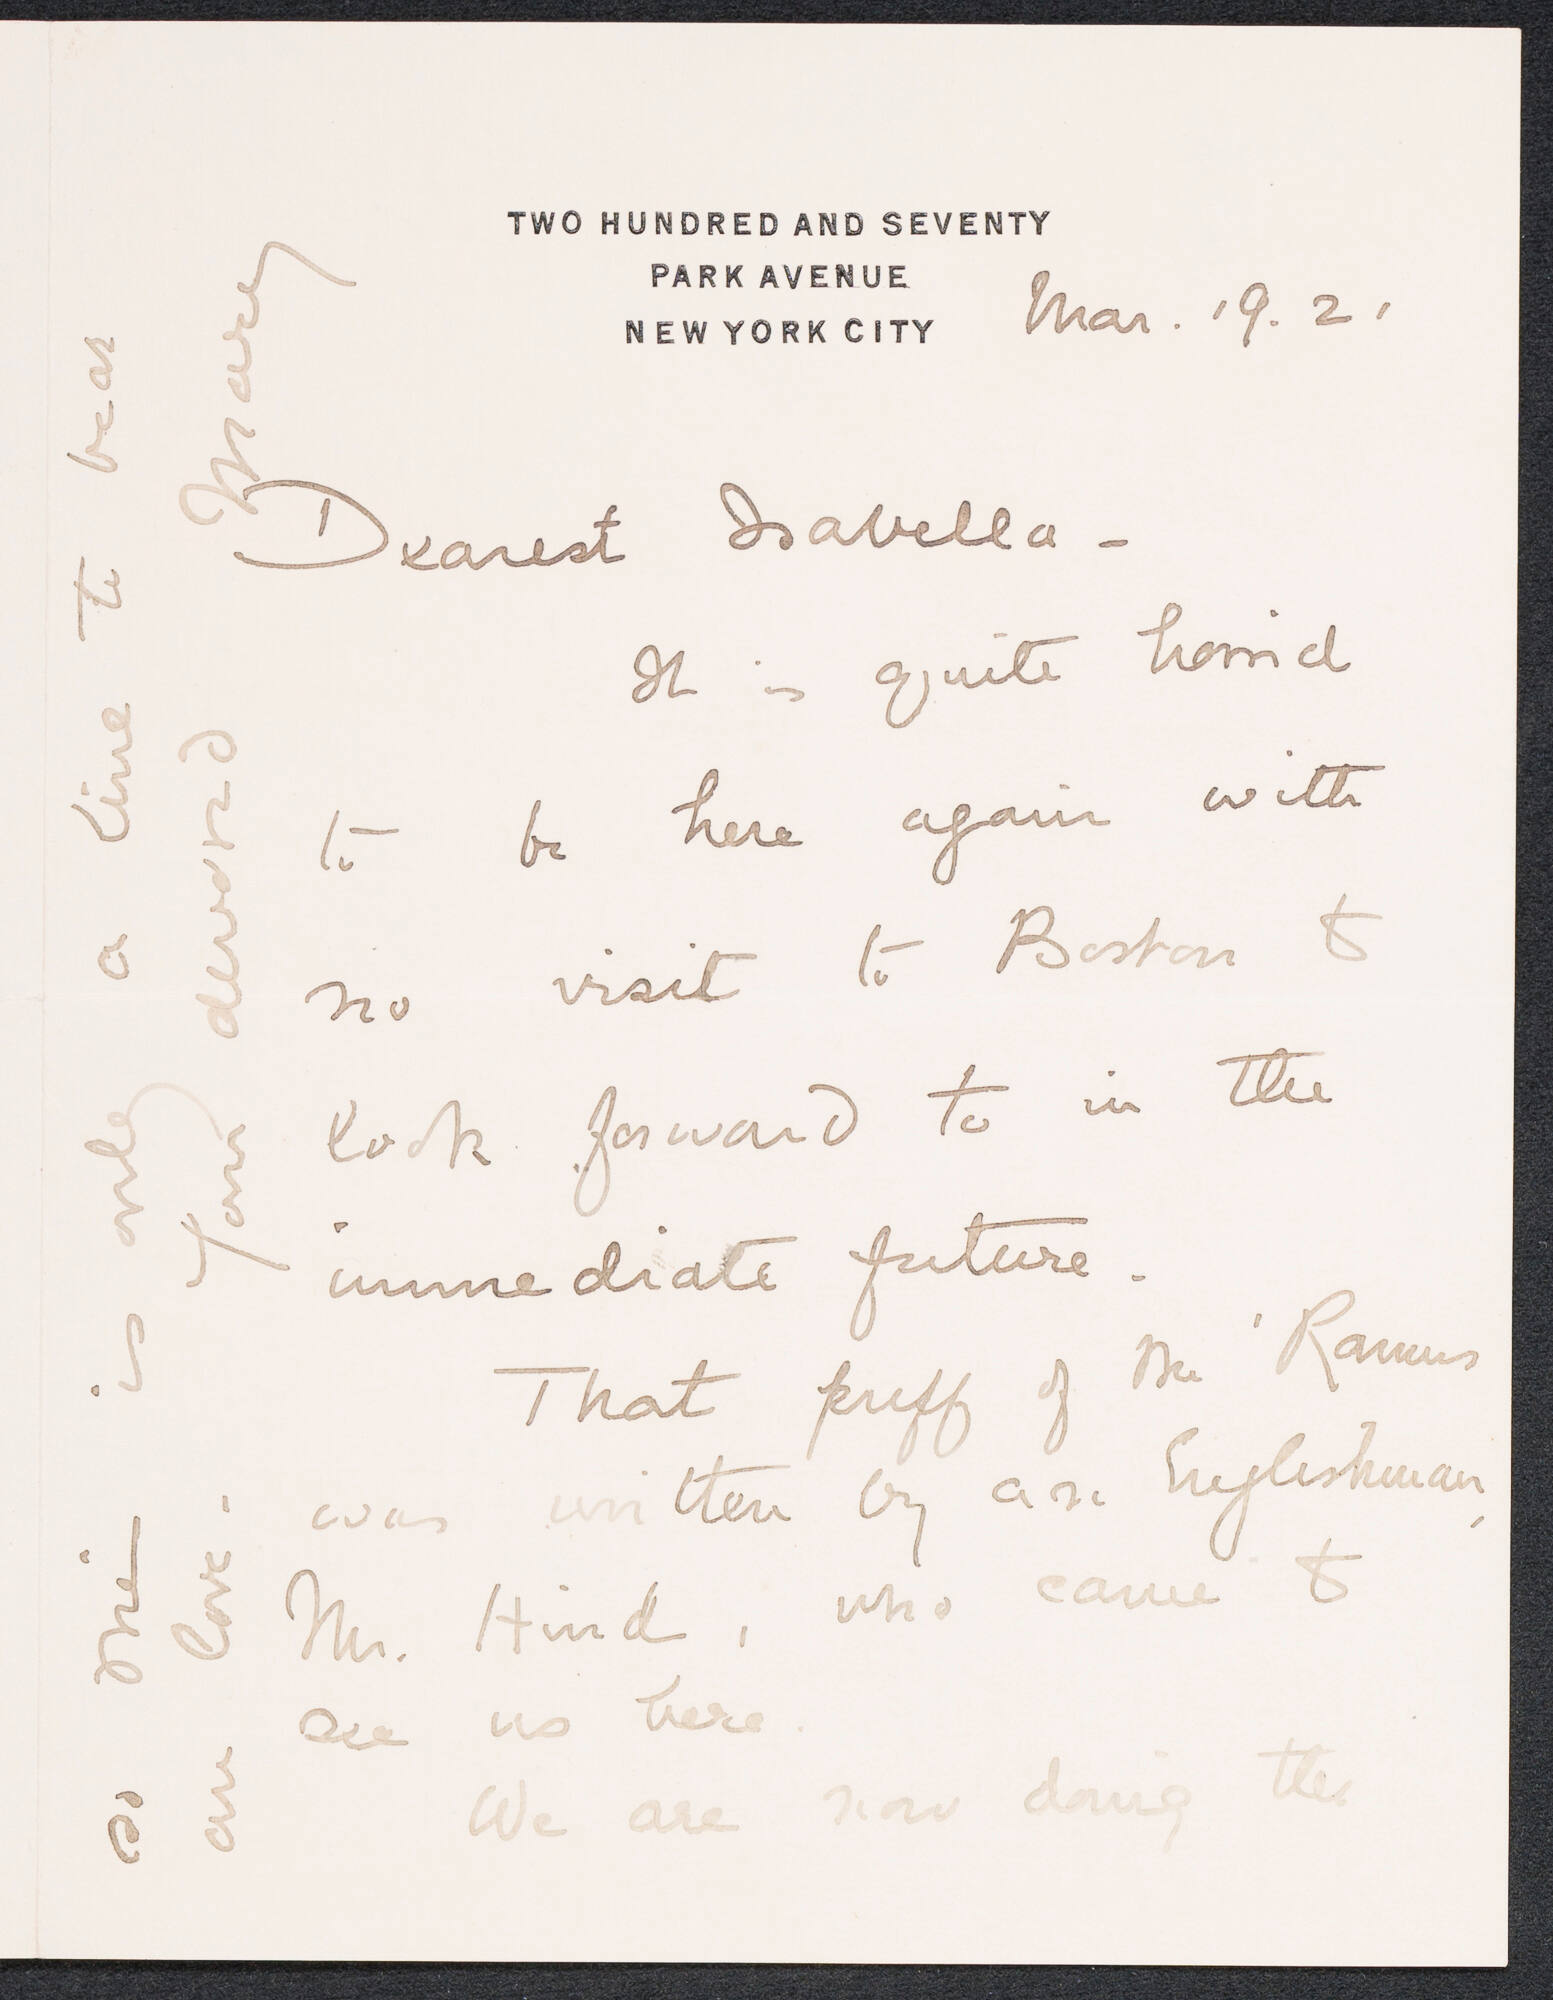 TWO HUNDRED AND SEVENTY
PARK AVENUE
NEW YORK CITY
Mar. 19. 21
Dearest Isabella -
It is quite horrid
to be here again with
no visit to Boston to
look forward to in the
immediate future.
That puff of the 'Ramus
was written by an Englishman,
Mr. Hind, who came to
see us here.
We are now doing the
so this is only a line to bear
our love.
Your devoted
Mary